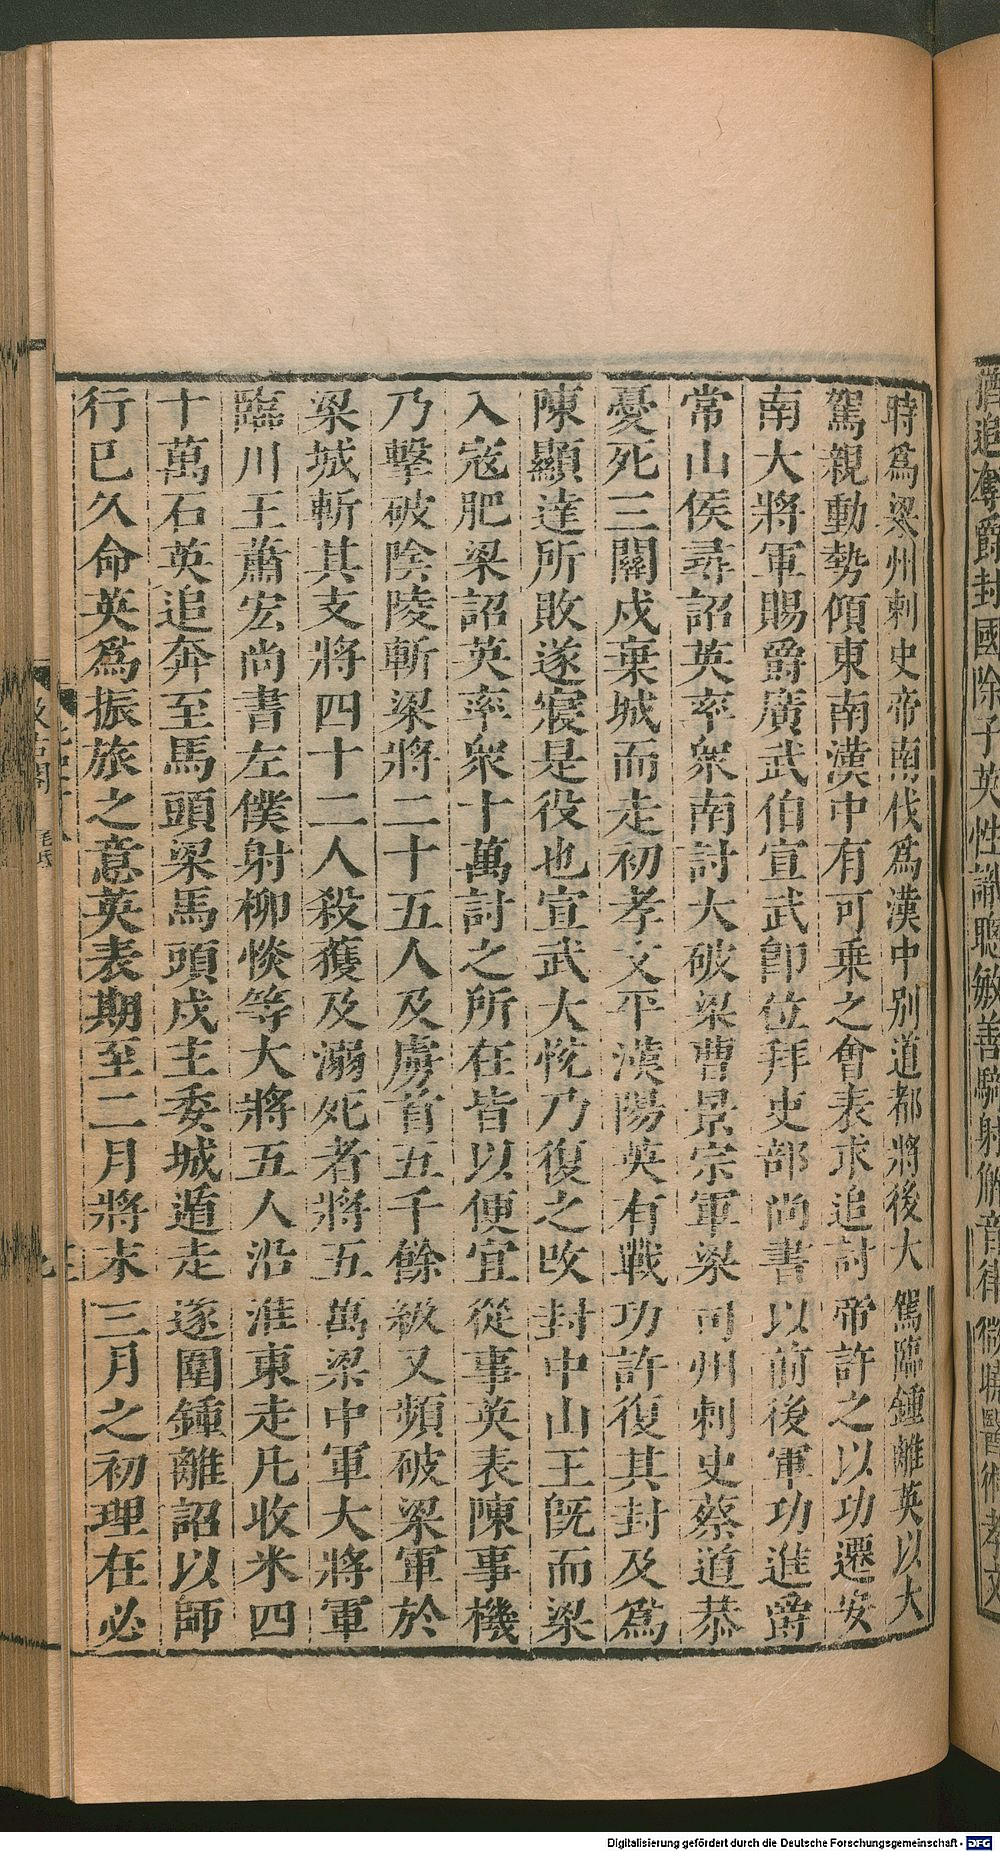 時爲梁州刺史帝南伐爲漢中別道都將後大駕臨鍾離英以大
駕親動勢傾東南漢中有可乗之會表求追討帝許之以功遷安
南大將軍賜爵廣武伯宣武即位拜吏部尚書以前後軍功進爵
常山侯尋詔英率衆南討大破梁曹景宗軍梁司州刺史蔡道恭
憂死三關戍棄城而走初孝文平漢陽英有戰功許復其封及爲
陳顯達所敗遂寢是役也宣武大恱乃復之攺封中山王旣而梁
入寇肥梁詔英率衆十萬討之所在皆以便宜從事英表陳事機
乃擊破陰陵斬梁將二十五人及虜首五千餘級又頻破梁軍於
梁城斬其支將四十二人殺獲及溺死者將五萬梁中軍大將軍
臨川王蕭宏尚書左僕射柳惔等大將五人沿淮東走凡收米四
十萬石英追奔至馬頭梁馬頭戍主委城遁走遂圍鍾離詔以師
行巳久命英爲振旅之意英表期至二月將末三月之初理在必
汲古閣
毛氏
Digitalisierung gefördert durch die Deutsche Forschungsgemeinschaft - DFG